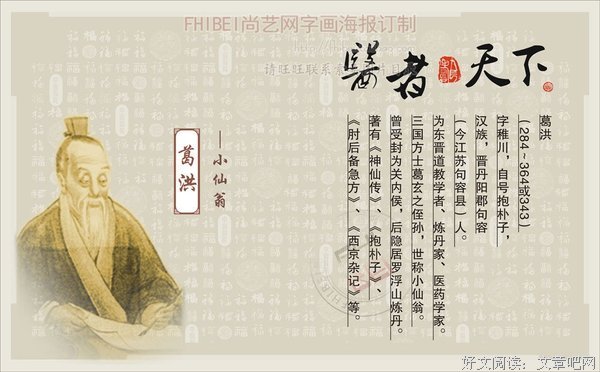 FHIBEI尚艺网字画海报订制
請旺旺联系
醫者天下
葛洪
(284~364或343)
字稚川，自号抱朴子，
汉族，晋丹阳郡句容
(今江苏句容县)人。
为东晋道教学者、炼丹家、医药学家。
三国方士葛玄之侄孙，世称小仙翁。
曾受封为关内侯，后隐居罗浮山炼丹。
著有《神仙传》、《抱朴子》、
《肘后备急方》、《西京杂记》等。
—小仙翁
葛洪
好文阅读：文章吧网